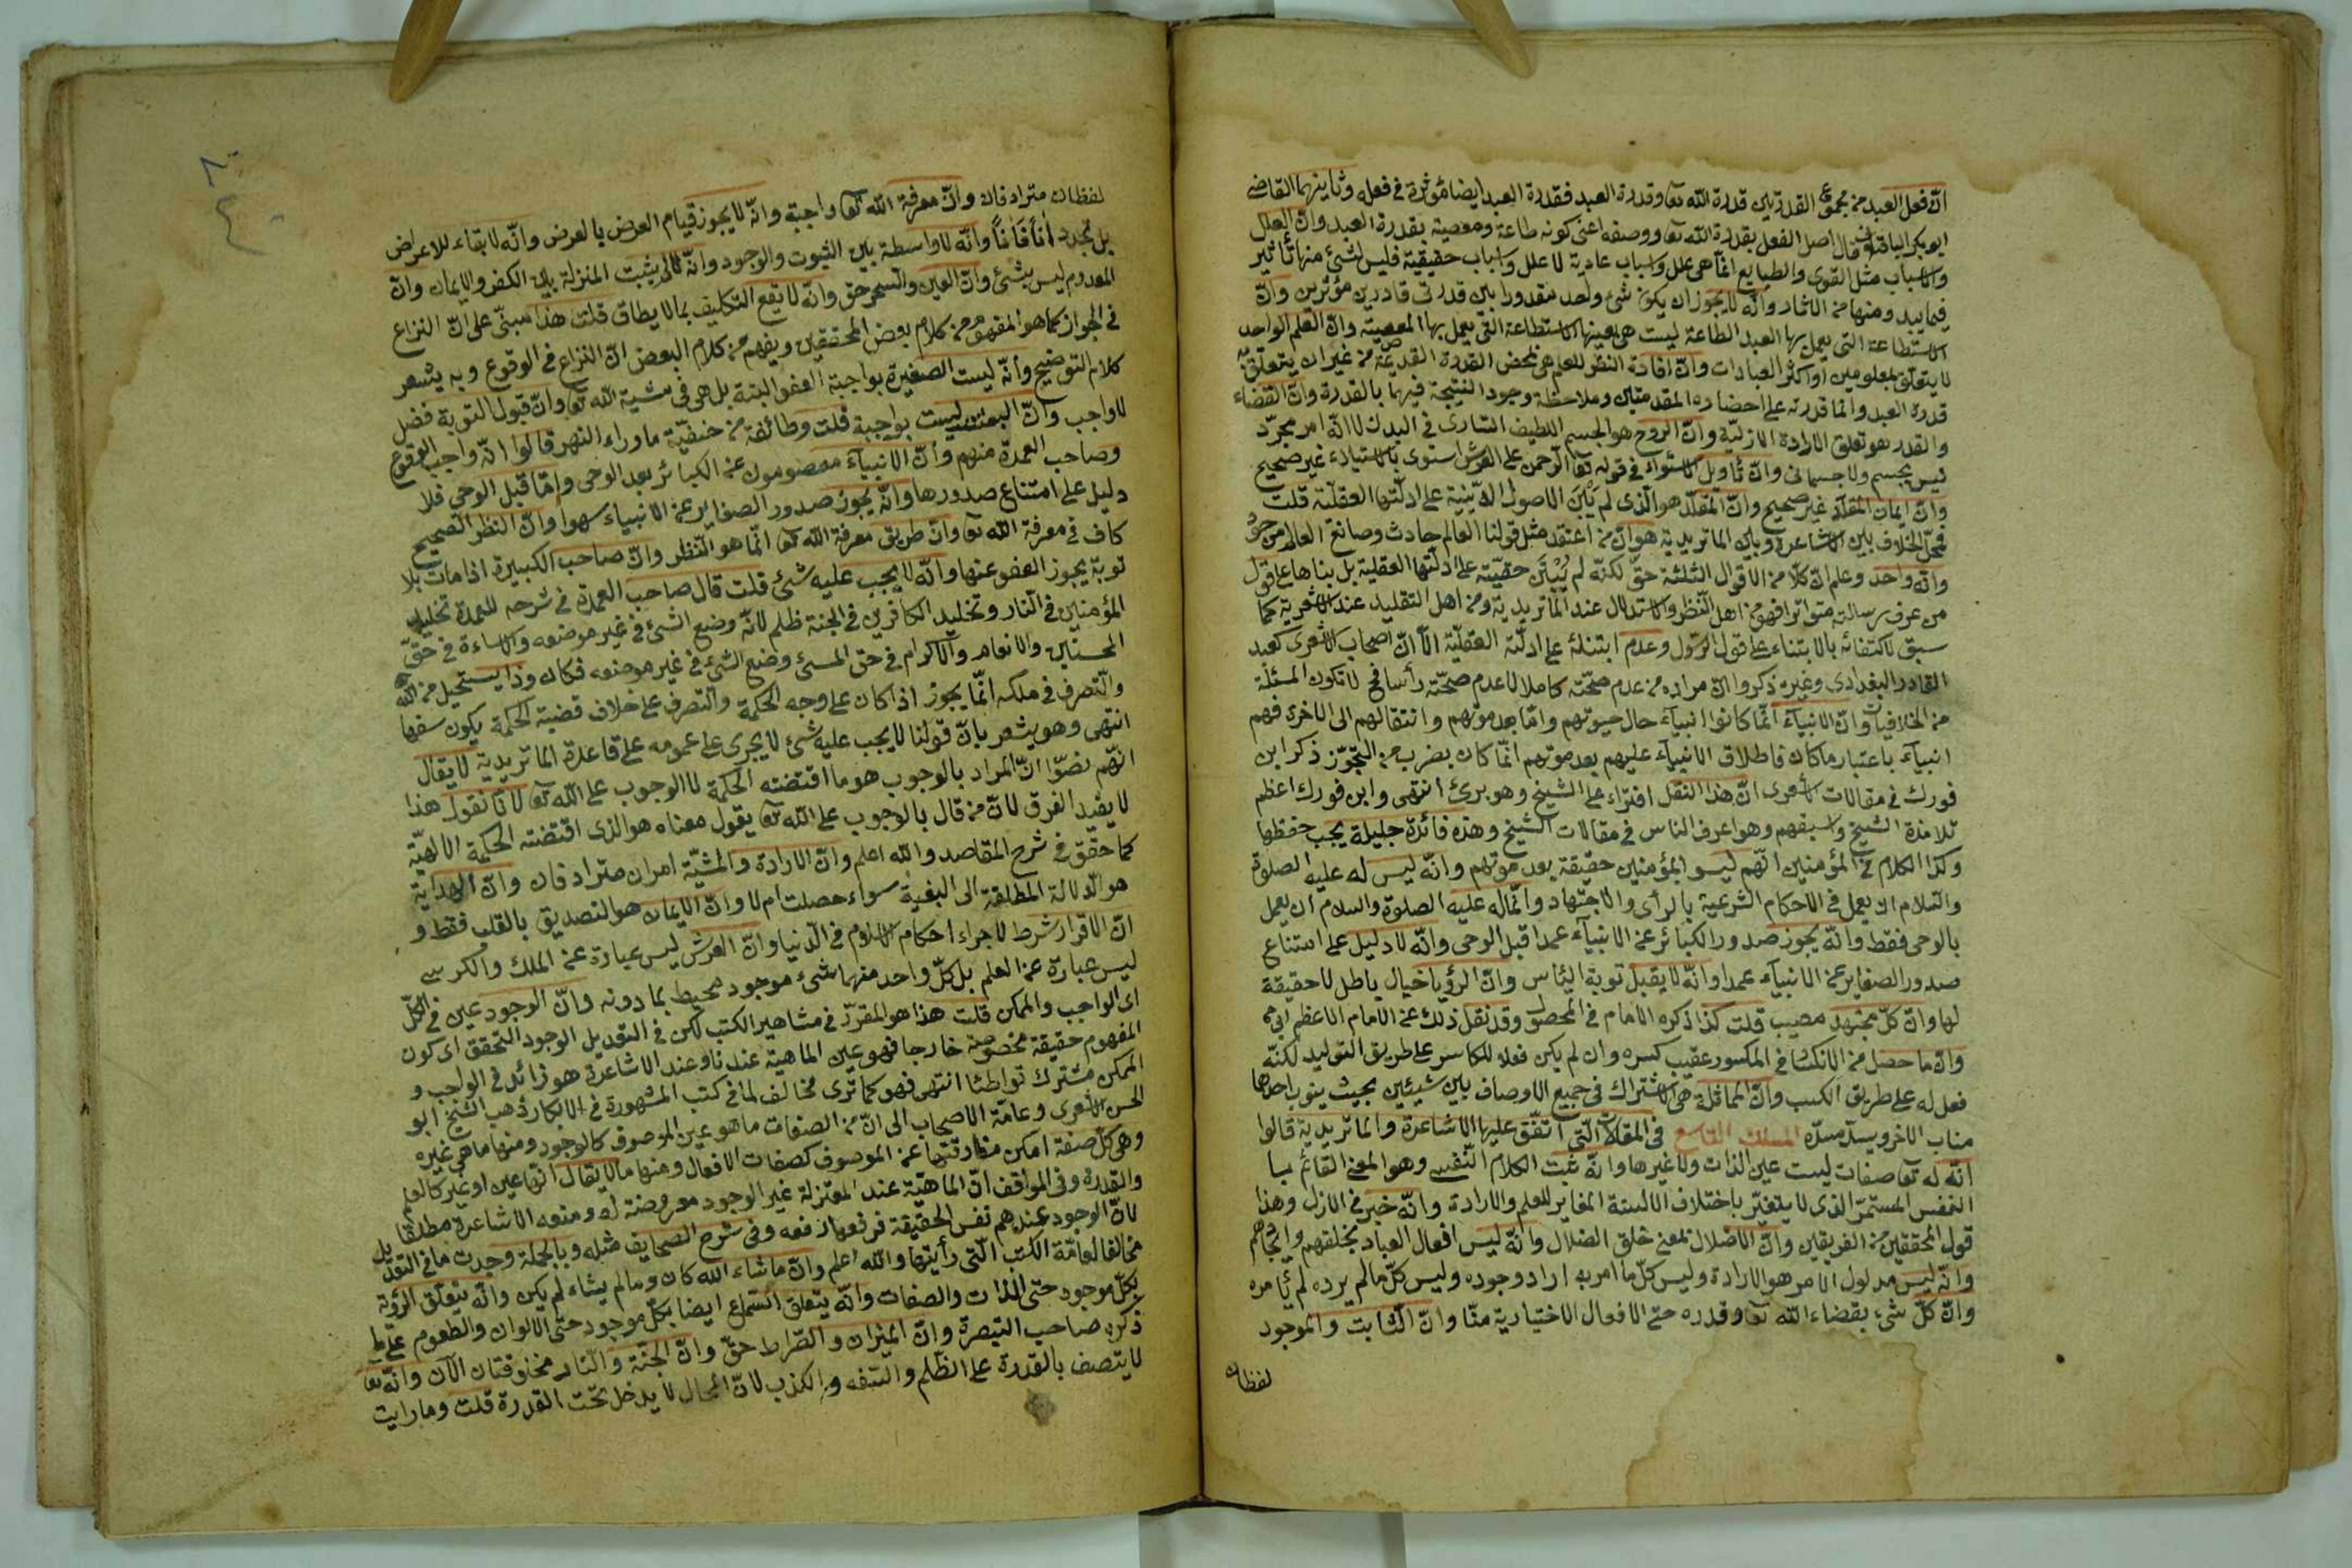 انّ فعل العبد من مجموع القدرتين قدرة الله تعا وقدرة العبد فقدرة العبد ايضا مؤثرة فى فعله وثانيهما القاضى
ابو بكر الباقلانى قال اصل الفعل بقدرة الله تعا ووصفه اعنى كونه طاعة ومعصية بقدرة العبد وانّ العلل
والاسباب مثل القوى والطبايع انما هى علل واسباب عادية لا علل واسباب حقيقية فليس لشئ منها تأثير
فيما يبد ومنها من الآثار وانّه لا يجوز ان يكون شئ واحد مقدورا بين قدرتى قادرين مؤثرين وانّ
الاستطاعة التى يعمل بها العبد الطاعة ليست هى بعينها الاستطاعة التى يعمل بها المعصية وانّ العلم الواحد
لا يتعلّق بمعلومين او اكثر العبادات وانّ افادة النظر للعلم هى بمحض القدرة القديمة من غير ان يتعلق به
قدرة العبد وانما قدرته على احضاره المقدمتين وملاحظة وجود النتيجة فيهما بالقدرة وانّ القضاء
والقدر هو تعلق الارادة الازليّة وانّ الروح هو الجسم اللطيف السارى فى البدن لا انّه امر مجرّد
ليس بجسم ولا جسمانى وانّ تأويل الاستواء فى قوله تعا الرحمن على العرش استوى بالاستيلاء غير صحيح
وانّ ايمان المقلّد غير صحيح وانّ المقلّد هو الذى لم يبن الاصول الدينية على ادلّتها العقليّة قلت
فمحلّ الخلاف بين الاشاعرة وبين الماتريدية هو انّ من اعتقد مثل قولنا العالم حادث وصانع العالم موجود
وانّه واحد وعلم انّ كلّا من الاقوال الثلثة حقّ لكنّه لم يبتن حقيّته على ادلّتها العقلية بل بناها على قول
من عرف رسالته متواترا فهو من اهل النظر والاستدلال عند الماتريدية ومن اهل التقليد عند الاشعرية كما
سبق لاكتفائه بالابتناء على قول الرسول وعدم ابتنائه على ادلّته العقليّة الّا انّ اصحاب الاشعرى كعبد
القادر البغدادى وغيره ذكروا انّ مراده من عدم صحّته كاملا لا عدم صحّته رأسا فح لا تكون المسئلة
من الخلافيات وانّ الانبيآء انّما كانوا انبيآء حال حيوتهم وامّا بعد موتهم وانتقالهم الى الاخرى فهم
انبيآء باعتبار ما كان فاطلاق الانبيآء عليهم بعد موتهم انّما كان بضرب من التجوّز ذكر ابن
فورك فى مقالات الاشعرى انّ هذا النقل افتراء على الشيخ وهو برئ انتهى وابن فورك اعظم
تلامذة الشيخ واسبقهم وهو اعرف الناس فى مقالات الشيخ وهذه فائدة جليلة يجب حفظها
وكذا الكلام فى المؤمنين انّهم ليسوا بمؤمنين حقيقة بعد موتهم وانّه ليس له عليه الصلوة
والسلام ان يعمل فى الاحكام الشرعية بالرأى والاجتهاد وانّما له عليه الصلوة والسلام ان يعمل
بالوحى فقط وانّه يجوز صدور الكبائر عن الانبيآء عمدا قبل الوحى وانّه لا دليل على امتناع
صدور الصغاير عن الانبيآء عمدا وانّه لا يقبل توبة اليئاس وانّ الرؤيا خيال باطل لا حقيقة
لها وانّ كلّ مجتهد مصيب قلت كذا ذكره الامام فى المحصول وقد نقل ذلك عن الامام الاعظم ابى ح
وانّ ما حصل من الانكسار فى المكسور عقيب كسره وان لم يكن فعلا للكاسر على طريق التوليد لكنّه
فعل له على طريق الكسب وانّ المماثلة هى الاشتراك فى جميع الاوصاف بين شيئين بحيث ينوب احدهما
مناب الاخر ويسدّ مسدّه المسلك التاسع فى المقالات التّى اتّفق عليها الاشاعرة والماتريدية قالوا
انّه له تعا صفات ليست عين الذات ولا غيرها وانّه ثبت الكلام النّفسى وهو المعنى القائم بها
النفس المستمرّ الذى لا يتغيّر باختلاف الالسنة المغاير للعلم والارادة وانّه خبر فى الازل وهذا
قول المحققين من الفريقين وانّ الاضلال بمعنى خلق الضلال وانّه ليس افعال العباد بخلقهم وايجادهم
وانّه ليس مدلول الامر هو الارادة وليس كلّ ما امر به اراد وجوده وليس كلّ ما لم يرده لم يأمره
وانّ كلّ شئ بقضاء الله تعا وقدره حتى الافعال الاختيارية منّا وانّ الثابت والموجود
لفظان
لفظان مترادفان وانّ معرفة الله تعا واجبة وانّه لا يجوز قيام العرض بالعرض وانّه لا بقاء للاعراض
بل تجدد آناً فآناً وانّه لا واسطة بين الثبوت والوجود وانّه لا يثبت المنزلة بين الكفر والايمان وانّ
المعدوم ليس بشئ وانّ العين والسحر حق وانّه لا يقع التكليف بما لا يطاق قلت هذا مبنىّ على انّ النزاع
فى الجواز كما هو المفهوم من كلام بعض المحققين ويفهم من كلام البعض انّ النزاع فى الوقوع وبه يشعر
كلام التوضيح وأنّه ليست الصغيرة بواجبة العفو البتة بل هى فى مشية الله تعا وانّ قبول التوبة فضل
لا واجب وانّ البعثة ليست بواجبة قلت وطائفة من حنفيّة ماوراء النهر قالوا انّه واجب الوقوع
وصاحب العمدة منهم وأنّ الانبيآء معصومون عن الكبائر بعد الوحى وامّا قبل الوحى فلا
دليل على امتناع صدورها وانّه يجوز صدور الصغاير عن الانبياء سهوا وانّ النظر الصحيح
كاف فى معرفة الله تعا وانّ طريق معرفة الله تعا انّما هو النّظر وانّ صاحب الكبيرة اذا مات بلا
توبة يجوز العفو عنها وانّه لا يجب عليه شئ قلت قال صاحب العمدة فى شرحه للعمدة تخليد
المؤمنين فى النار وتخليد الكافرين فى الجنة ظلم لانّه وضع الشئ فى غير موضعه والاساءة فى حقّ
المحسنين والانعام والاكرام فى حق المسئ وضع الشئ فى غير موضعه فكان وذا يستحيل من الله
والتصرف فى ملكه انّما يجوز اذا كان على وجه الحكمة والتصرف على خلاف قضية الحكمة يكون سفها
انتهى وهو يشعر بانّ قولنا لا يجب عليه شئ لا يجرى على عمومه على قاعدة الماتريدية لا يقال
انّهم نصّوا انّ المراد بالوجوب هو ما اقتضته الحكمة لا الوجوب على الله تعا لانّا نقول هذا
لا يفيد الفرق لانّ من قال بالوجوب على الله تعا يقول معناه هو الذى اقتضته الحكمة الالهيّة
كما حقق فى شرح المقاصد والله اعلم وانّ الارادة والمشيّة امران مترادفان وانّ الهداية
هو الدلالة المطلقة الى البغية سواء حصلت ام لا وانّ الايمان هو التصديق بالقلب فقط و
انّ الاقرار شرط لاجراء احكام الاسلام فى الدّنيا وانّ العرش ليس عبارة عن الملك والكرسى
ليس عبارة عن العلم بل كلّ واحد منهما شئ موجود محيط بما دونه وانّ الوجود عين فى الكلّ
اى الواجب والممكن قلت هذا هو المقرّر فى مشاهير الكتب لكن فى التعديل الوجود التحقق اى كون
المفهوم حقيقة مخصوصة خارجا فهو عين الماهية عندنا وعند الاشاعرة هو زائد فى الواجب و
الممكن مشترك تواطئا انتهى فهو كما ترى مخالف لما فى كتب المشهورة فى الابكار ذهب الشيخ ابو
الحسن الاشعرى وعامّة الاصحاب الى انّ من الصفات ما هو عين الموصوف كالوجود ومنها ما هى غيره
وهى كلّ صفة امكن مفارقتها عن الموصوف كصفات الافعال ومنها ما لا يقال انّها عين او غير كالعلم
والقدرة وفى المواقف انّ الماهيّة عند المعتزلة غير الوجود معروضة له ومنعه الاشاعرة مطلقا
لانّ الوجود عندهم نفس الحقيقة فرفعها رفعه وفى شرح الصحايف مثله وبالجملة وجدت ما فى التعديل
مخالفا لعامّة الكتب التى رأيتها والله اعلم وانّ ما شاء الله كان وما لم يشاء لم يكن وانّه يتعلّق الرؤية
بكلّ موجود حتى الذات والصفات وانّه يتعلق السّماع ايضا بكلّ موجود حتى الالوان والطعوم على ما
ذكره صاحب التبصرة وانّ الميزان والصّراط حقّ وانّ الجنّة والنار مخلوقتان الآن وانّه تعا
لا يتصف بالقدرة على الظّلم والسّفه والكذب لانّ المحال لا يدخل تحت القدرة قلت وما رايت